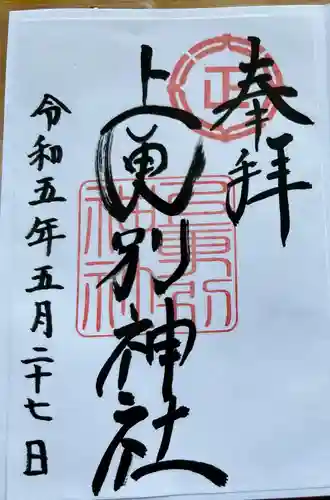 奉拝
正
上更別神社
上更別
神社
令和五年五月二十七日